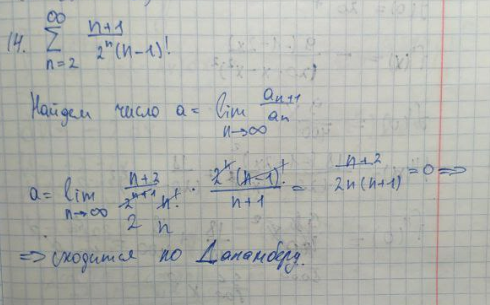 14. ∞ ∑ n=2 n+1 / 2ⁿ(n-1)!
Найдем число a = lim n→∞ aₙ₊₁ / aₙ
a = lim n→∞ n+2 / 2ⁿ⁺¹ n! · 2ⁿ (n-1)! / n+1 = n+2 / 2n(n+1) = 0 ⇒
2 n
⇒ сходится по Даламберу.